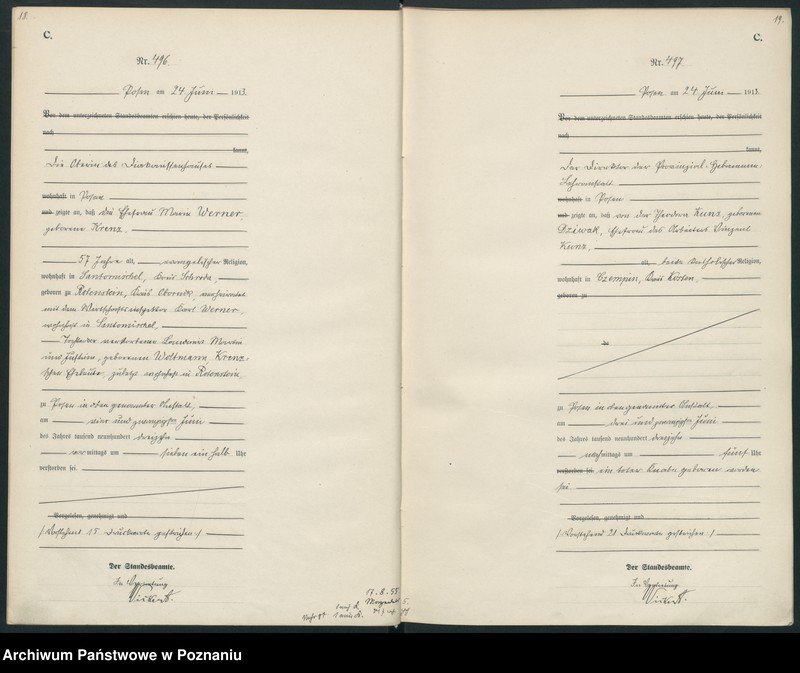 18.
C.
Nr. 496.
Posen am 24. Juni 1913.
Vor dem unterzeichneten Standesbeamten erschien heute, der Persönlichkeit
nach
kannt,
Die Oberin des Diakonissenhauses
wohnhaft in Posen
und zeigte an, daß die Ehefrau Marie Werner,
geborene Krenz,
57 Jahre alt, evangelischer Religion,
wohnhaft in Santomischel, Kreis Schroda,
geboren zu Rotenstein, Kreis Obornik, verheiratet
mit dem Wirtschaftsinspektor Karl Werner,
wohnhaft in Santomischel,
Tochter der verstorbenen Landwirt Martin
und, geborenen Woltmann, Krenz-
schen Eheleute, zuletzt wohnhaft in Rotenstein,
zu Posen in oben genannter Anstalt,
am vier und zwanzigsten Juni
des Jahres tausend neunhundert dreizehn
vormittags um sieben ein halb Uhr
verstorben sei.
Vorgelesen, genehmigt und
(Vorstehend 15 Druckworte gestrichen.)
Der Standesbeamte.
In Vertretung
17. 8. 55
19.
C.
Nr. 497
Posen am 24. Juni 1913.
Vor dem unterzeichneten Standesbeamten erschien heute, der Persönlichkeit
nach
kannt,
Der Direktor der Provinzial-Hebammen-
Lehranstalt.
wohnhaft in Posen
und zeigte an, daß von der Theodora Kunz, geborenen
Dziwak, Ehefrau des Arbeiters Vinzent
Kunz,
alt, beide katholischer Religion,
wohnhaft in Czempin, Kreis Kosten,
geboren zu
de
zu Posen in obengenannter Anstalt,
am drei und zwanzigsten Juni
des Jahres tausend neunhundert dreizehn
nachmittags um fünf Uhr
verstorben sei ein toter Knabe geboren worden
sei.
Vorgelesen, genehmigt und
(Vorstehend 21 Druckworte gestrichen.)
Der Standesbeamte.
In Vertretung
Archiwum Państwowe w Poznaniu